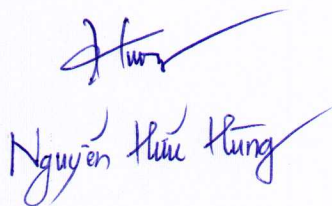 Hưng
Nguyễn Hữu Hùng